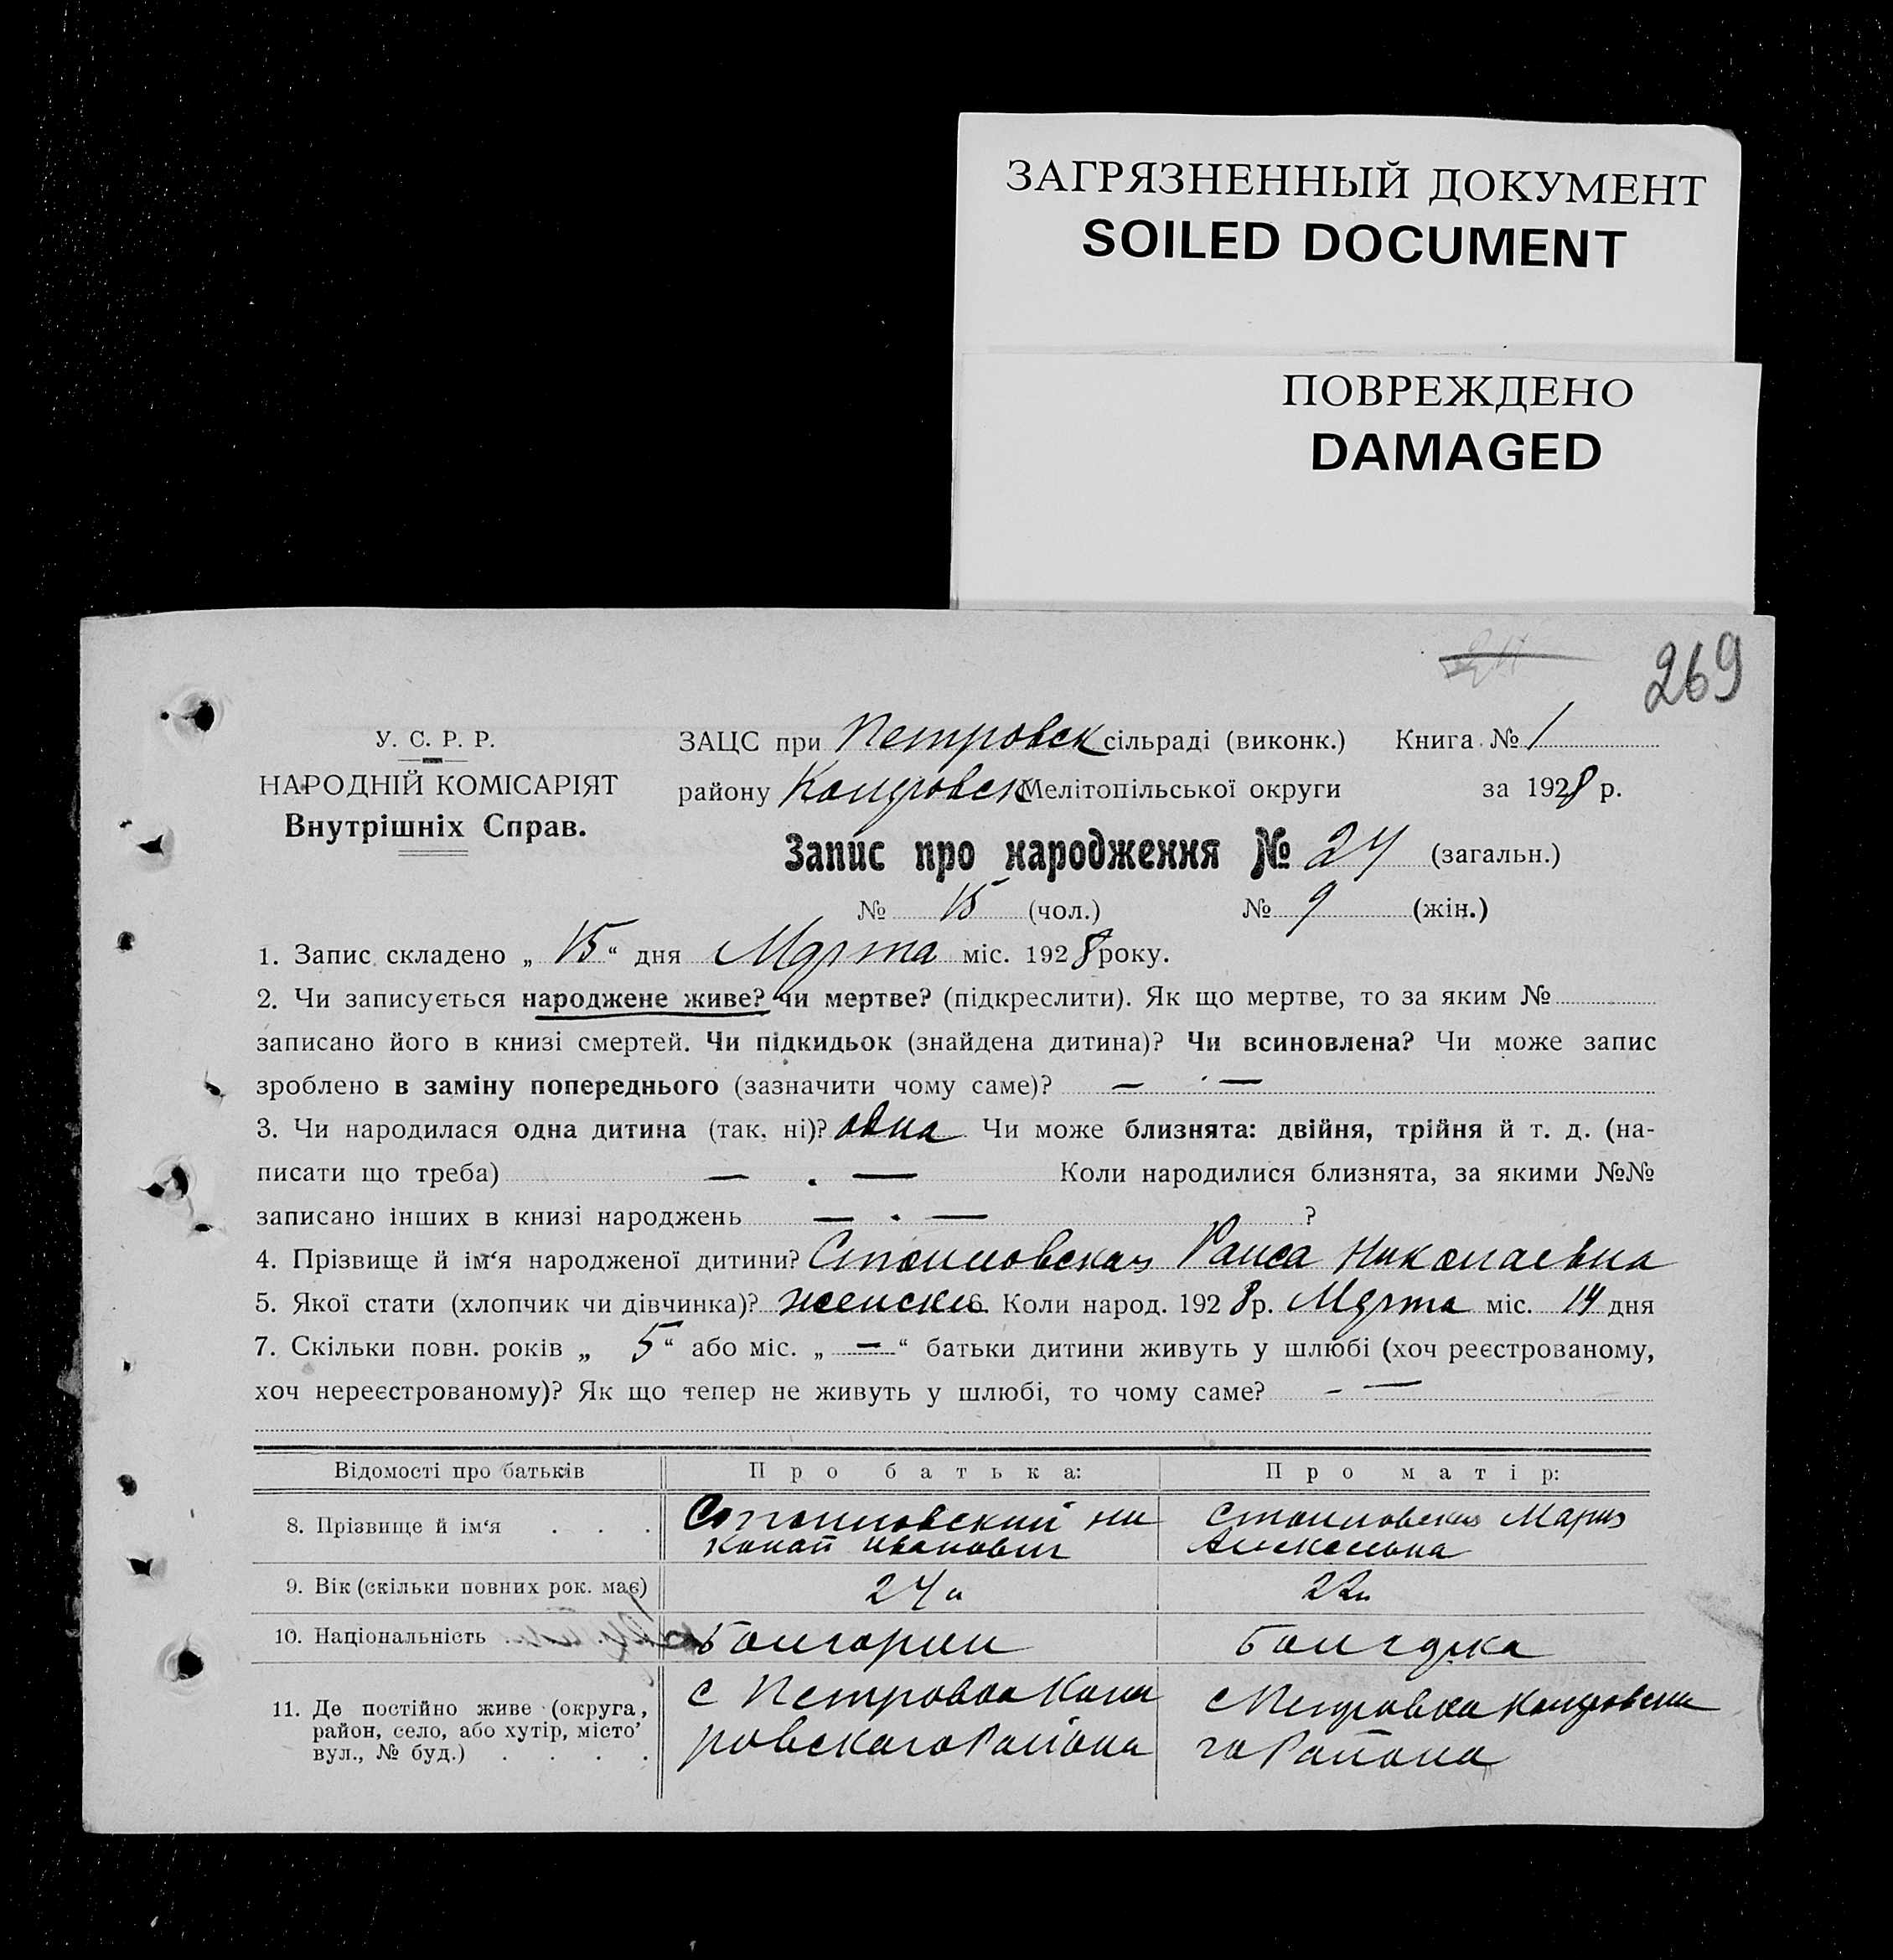 ЗАГРЯЗНЕННЫЙ ДОКУМЕНТ
SOILED DOCUMENT
ПОВРЕЖДЕНО
DAMAGED
269
У. С. Р. Р.
НАРОДНІЙ КОМІСАРІЯТ
Внутрішніх Справ.
ЗАЦС при Петровск сільраді (виконк.) Книга № 1
району Мелітопільської округи за 1928 р.
Запис про народження № 24 (загальн.)
№ 15 (чол.) № 9 (жін.)
1. Запис складено „ 15 “ дня Марта міс. 1928 року.
2. Чи записується народжене живе? чи мертве? (підкреслити). Як що мертве, то за яким №
записано його в книзі смертей. Чи підкидьок (знайдена дитина)? Чи всиновлена? Чи може запис
зроблено в заміну попереднього (зазначити чому саме)? — · —
3. Чи народилася одна дитина (так, ні)? одна Чи може близнята: двійня, трійня й т. д. (на-
писати що треба) — . — Коли народилися близнята, за якими №№
записано інших в книзі народжень — · — ?
4. Прізвище й ім‘я народженої дитини? Стоиловская Раиса Николаевна
5. Якої стати (хлопчик чи дівчинка)? женски 6. Коли народ. 1928 р. Марта міс. 14 дня
7. Скільки повн. років „ 5 “ або міс. „ — “ батьки дитини живуть у шлюбі (хоч реєстрованому,
хоч нереєстрованому)? Як що тепер не живуть у шлюбі, то чому саме? - —
Відомості про батьків Про батька: Про матір:
8. Прізвище й ім‘я . . . Стоиловский Ни
колай Иванович
Стоиловская Мария
9. Вік (скільки повних рок. має) 24 22
10. Національність Болгарин Болгарка
11. Де постійно живе (округа,
район, село, або хутір, місто
вул., № буд.) . . . .
с Петровка
ровскаго Района
с Петровка
го Района